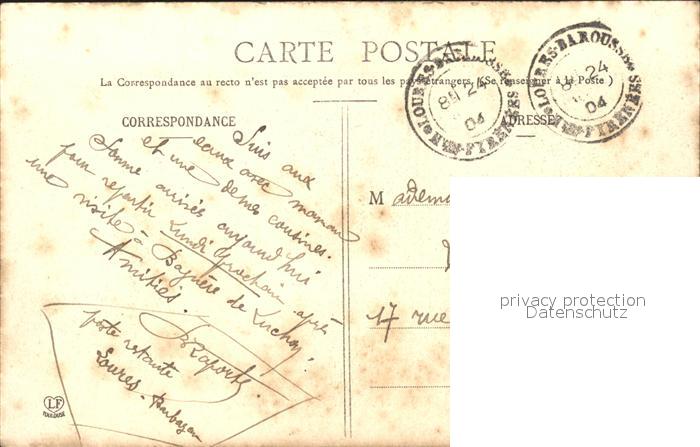 CARTE POSTALE
La Correspondance au recto n'est pas acceptée par tous les pays étrangers. (Se renseigner à la Poste)
CORRESPONDANCE
ADRESSE
Suis aux
eaux avec maman
et une de mes cousines.
Somme arrivés aujourd'hui
pour repartir Lundi prochain après
une visite à Bagnère de Luchon.
Amitiés.
Laporte
poste restante
Loures-Barbazan
M adem
17 rue
LOURES-BAROUSSE
24
04
HTES PYRÉNÉES
LOURES-BAROUSSE
24
04
HTES PYRÉNÉES
privacy protection
Datenschutz
LF
TOULOUSE